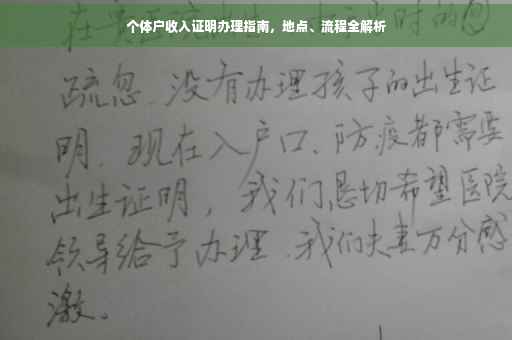 个体户收入证明办理指南，地点、流程全解析
疏忽.没有办理孩子的出生证
明.现在入户口、防疫都需要
出生证明，我们恳切希望医院
领导给予办理.我们夫妻万分感
激。